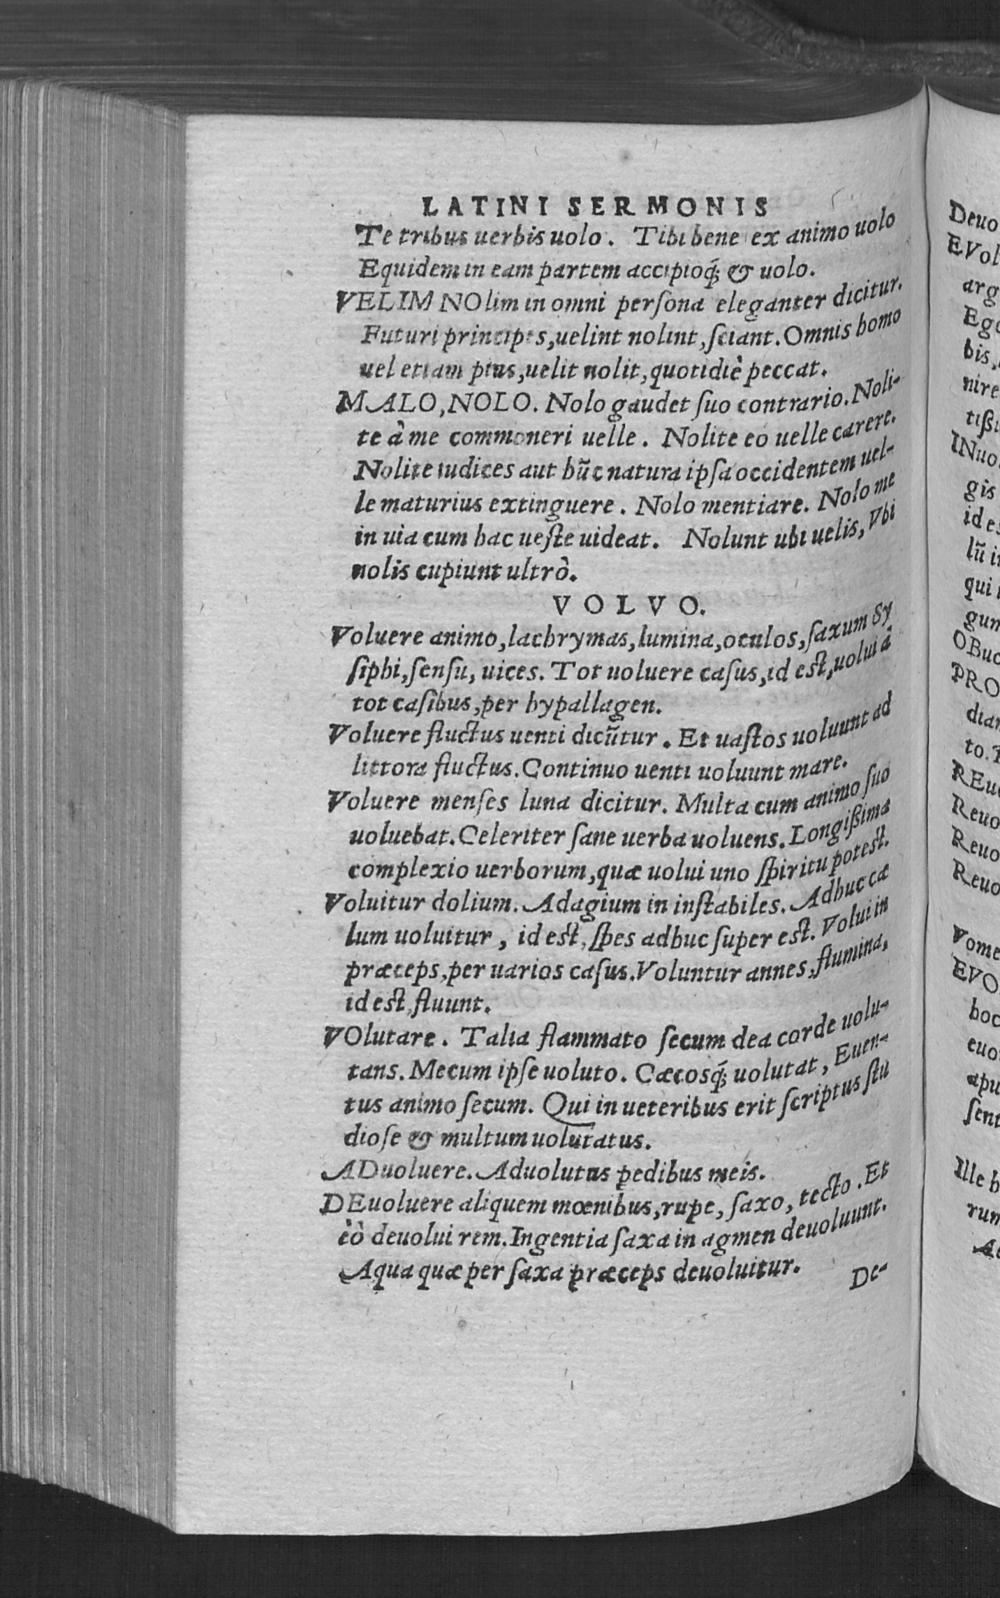 LATINI SERMONIS
Te tribus uerbis uolo. Tibi bene ex animo uolo
Equidem in eam partem accipioq́; & uolo.
VELIM NOlim in omni perſona eleganter dicitur.
Futuri principes, uelint nolint, ſciant. Omnis homo
uel etiam pius, uelit nolit, quotidiè peccat.
MALO, NOLO. Nolo gaudet ſuo contrario. Noli-
te à me commoneri uelle. Nolite eo uelle carere.
Nolite iudices aut hũc natura ipſa occidentem uel-
le maturius extinguere. Nolo mentiare. Nolo me
in uia cum hac ueſte uideat. Nolunt ubi uelis, Vbi
nolis cupiunt ultrò.
VOLVO.
Voluere animo, lachrymas, lumina, oculos, ſaxum Sy
ſiphi, ſenſu, uices. Tot uoluere caſus, id eſt, uolui à
tot caſibus, per hypallagen.
Voluere fluctus uenti dicũtur. Et uaſtos uoluunt ad
littora fluctus. Continuo uenti uoluunt mare.
Voluere menſes luna dicitur. Multa cum animo ſuo
uoluebat. Celeriter ſane uerba uoluens. Longißima
complexio uerborum, quæ uolui uno ſpiritu poteſt.
Voluitur dolium. Adagium in inſtabiles. Adhuc cæ
lum uoluitur, id eſt, ſpes adhuc ſuper eſt. Volui in
præceps, per uarios caſus. Voluntur annes, flumina,
id eſt, fluunt.
VOlutare. Talia flammato ſecum dea corde uolu-
tans. Mecum ipſe uoluto. Cæcosq́; uolutat, Euen-
tus animo ſecum. Qui in ueteribus erit ſcriptus ſtu
dioſe & multum uolutatus.
ADuoluere. Aduolutus pedibus meis.
DEuoluere aliquem mœnibus, rupe, ſaxo, tecto. Et
èò deuolui rem. Ingentia ſaxa in agmen deuoluunt.
Aqua quæ per ſaxa præceps deuoluitur.
De-
Deuo
EVol
arg
bis,
nire
tißi
INuo
gis
id es
lũ i
qui
gun
OBuc
PRO
dian
to.
REuo
Reuo
Reuo
Reuo
Vome
EVO
hoc
euo
apu
ſent
Ille h
rum